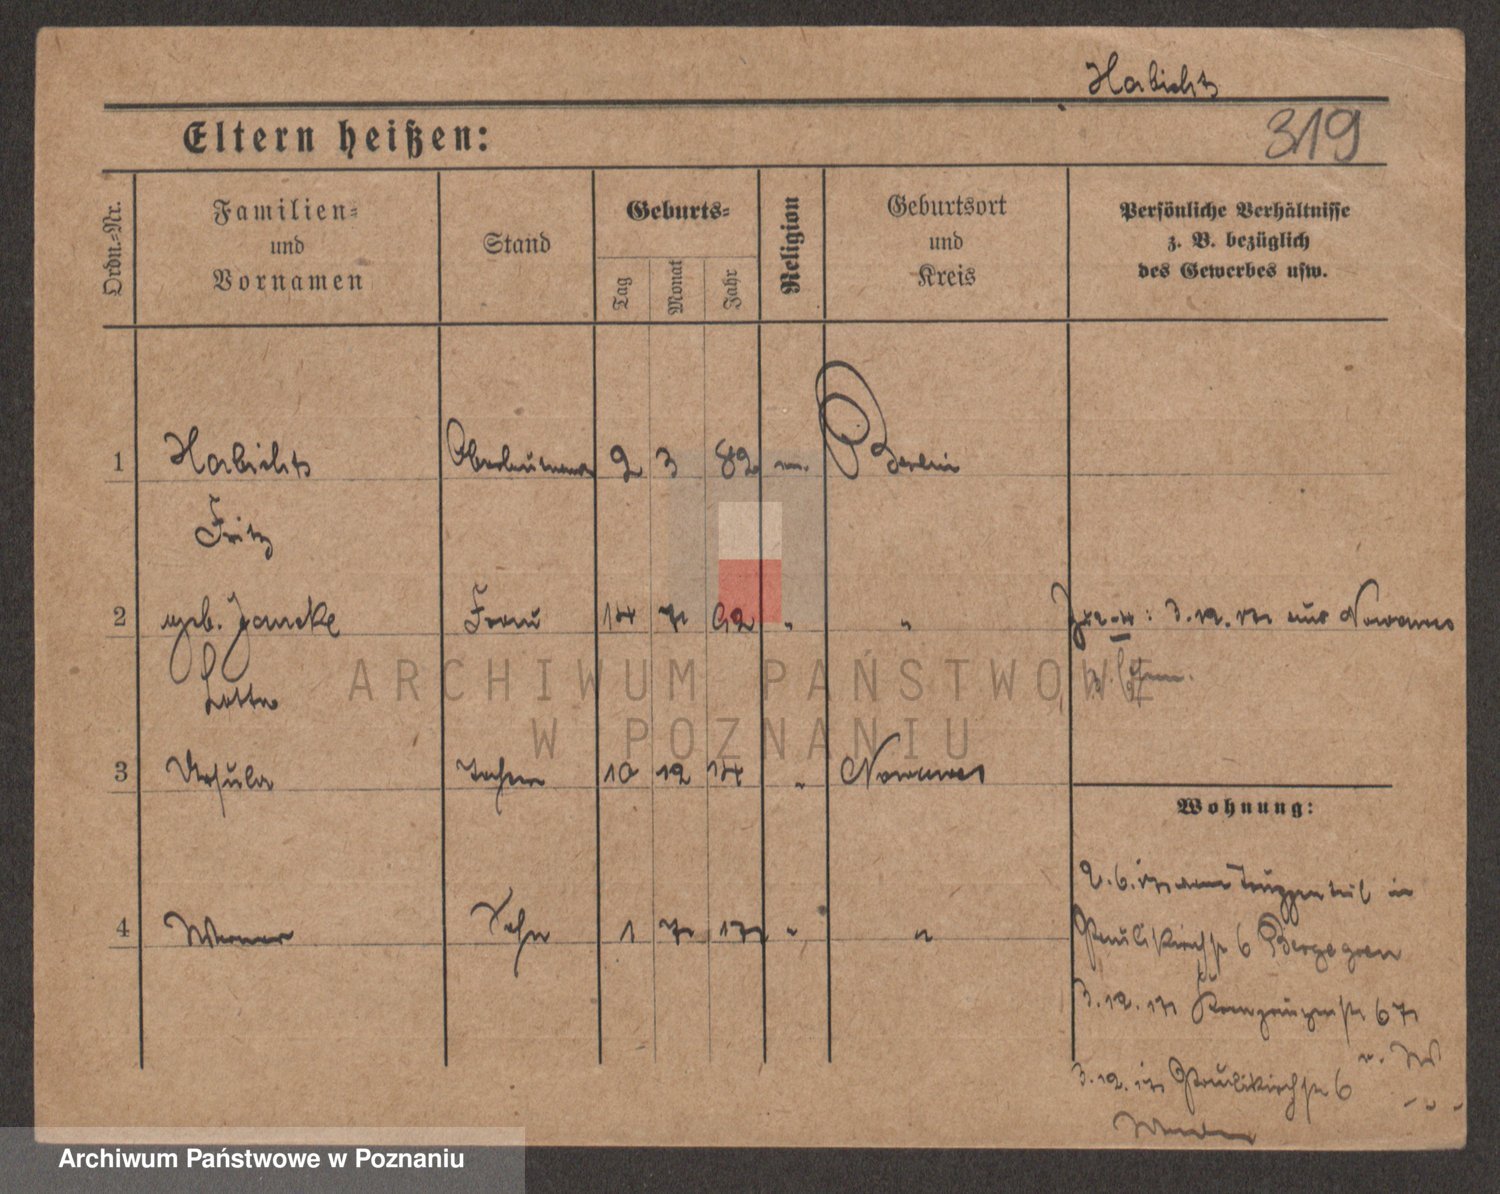 Habicht
319
Eltern heißen:
Ordn.-Nr.
Familien-
und
Vornamen
Stand
Geburts-
Tag
Monat
Jahr
Religion
Geburtsort
und
Kreis
Persönliche Verhältnisse
z. B. bezüglich
des Gewerbes usw.
1 Habicht Oberleutnant 2 3 82 ev. Berlin
Fritz
2 geb. Jancke Frau 14 7 92 " " 2-4: 3.12.17 aus Nowawes
Lotte
3 Ursula Tochter 10 12 14 " Nowawes
Wohnung:
4 Werner Sohn 1 7 17 " "
2.6.17 Truppenteil in
Paulikirchstr 6
3.12.17 67
3.12.17 Paulikirchstr 6
ARCHIWUM PAŃSTWOWE
W POZNANIU
Archiwum Państwowe w Poznaniu